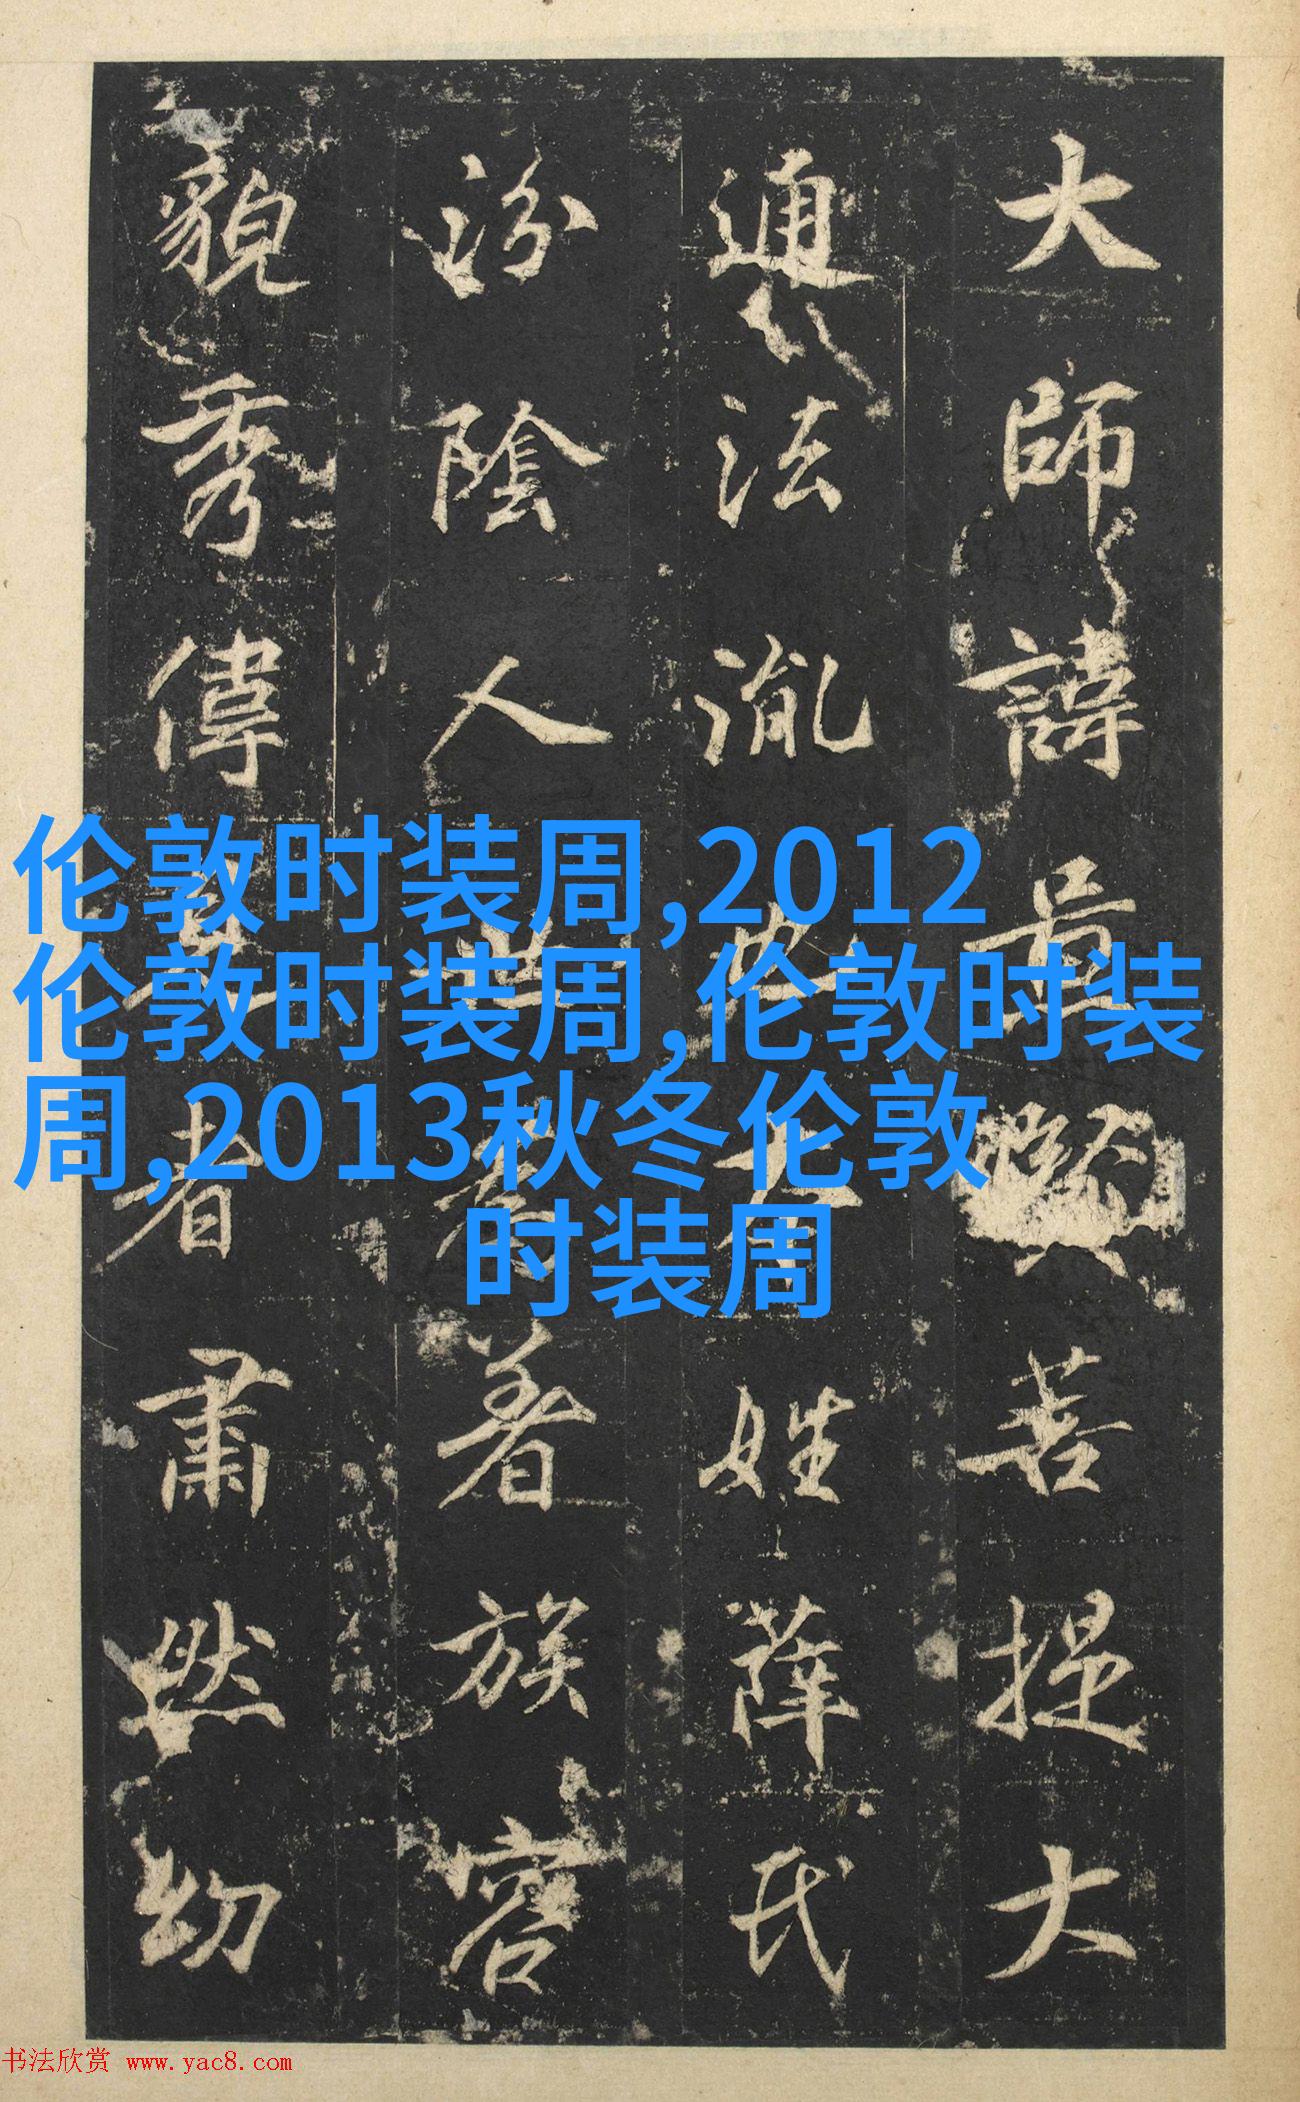 伦敦时装周,2012
伦敦时装周,伦敦时装
周,2013秋冬伦敦
时装周
大師諱菩提大
通法也姓薛氏
汾陰人世為著族容
貌秀偉者肅然幼
书法欣赏 www.yac8.com